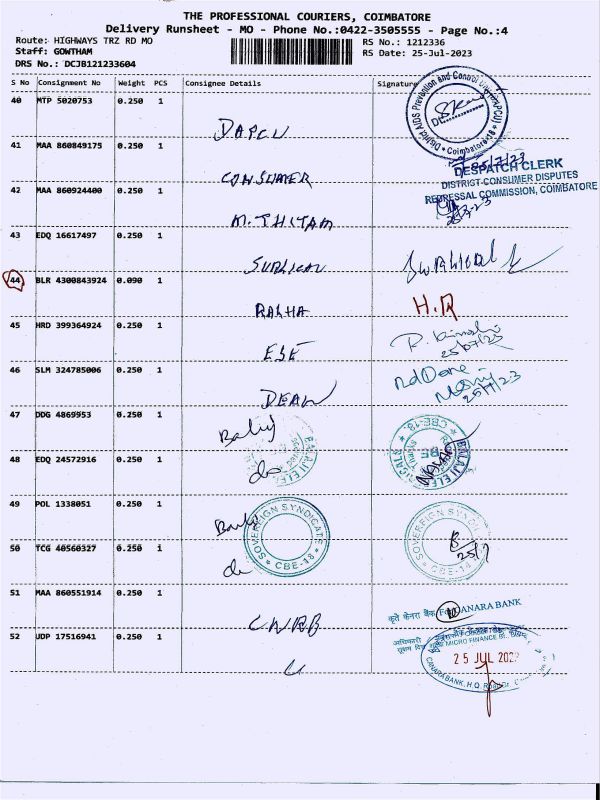 THE PROFESSIONAL COURIERS, COIMBATORE
Delivery Runsheet - MO - Phone No.:0422-3505555 - Page No.:4
Route: HIGHWAYS TRZ RD MO RS No.: 1212336
Staff: GOWTHAM RS Date: 25-Jul-2023
DRS No.: DCJB121233604
S No Consignment No Weight PCS Consignee Details Signature
40 MTP 5020753 0.250 1
District AIDS Prevention and Control
Coimbatore-18
DAPCU
41 MAA 860849175 0.250 1 25/7/23
DESPATCH CLERK
DISTRICT CONSUMER DISPUTES
CONSUMER
42 MAA 860924400 0.250 1 REDRESSAL COMMISSION, COIMBATORE
43 EDQ 16617497 0.250 1
SURGICAL
44 BLR 4300843924 0.090 1
H.R
45 HRD 399364924 0.250 1
25/07/23
ESE
46 SLM 324785006 0.250 1
25/7/23
DEAN
47 DDG 4869953 0.250 1
CBE-18
Balaji
BALAJI ELE
48 EDQ 24572916 0.250 1
do
49 POL 1338051 0.250 1
SOVEREIGN SYNDICATE SOVEREIGN SYNDICATE
50 TCG 40560327 0.250 1
25/7
CBE-18 CBE-18
do
51 MAA 860551914 0.250 1
कृते केनरा बैंक For CANARA BANK
52 UDP 17516941 0.250 1
MICRO FINANCE
25 JUL 2023
CANARA BANK, H.O.